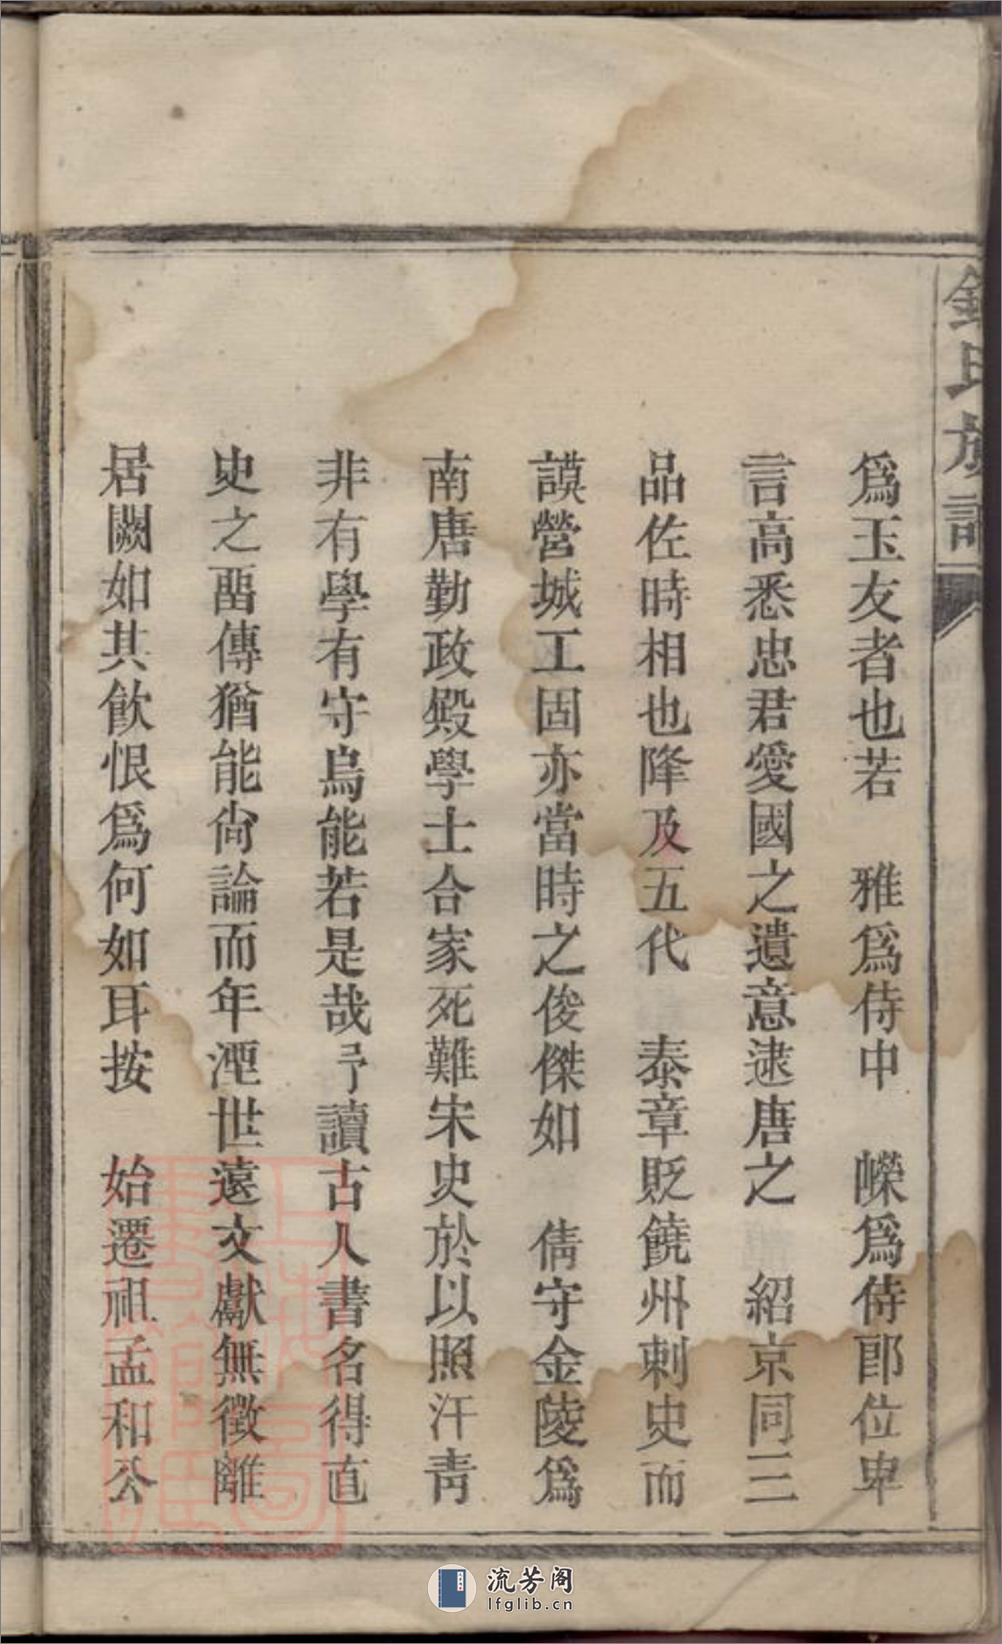 氏族譜
爲玉友者也若　雅爲侍中　嶸爲侍郎位卑
言高悉忠君愛國之遺意逮唐之　紹京同三
品佐時相也降及五代　泰章貶饒州刺史而
謨營城工固亦當時之俊傑如　倩守金陵爲
南唐勤政殿學士合家死難宋史於以照汗靑
非有學有守烏能若是哉予讀古人書名得直
史之畱傳猶能尙論而年湮世遠文獻無徵離
居闕如其飮恨爲何如耳按　始遷祖孟和公
流芳阁
lfglib.cn